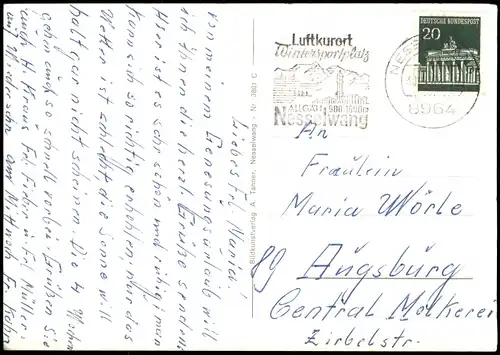 Liebes Frl. Maria!
von meinem Genesungsurlaub will
ich Ihnen die herzl. Grüße senden.
Hier ist es sehr schön und ruhig man
kann sich so richtig erholen, nur das
Wetter ist schlecht die Sonne will
halt gar nicht scheinen. Die 4 Wochen
gehen auch so schnell vorbei. Grüßen Sie
auch H. Kraus Frl. u. Frl. Müller.
auf Wiedersehn am Mittwoch Fr.
Bildkunstverlag A. Tanner, Nesselwang - Nr. 3801 C
Luftkurort
Wintersportplatz
ALLGÄU 900-1600m
Nesselwang
NESSELWANG
8964
DEUTSCHE BUNDESPOST
20
An
Fräulein
Maria Wörle
89 Augsburg
Central Molkerei
Zirbelstr.